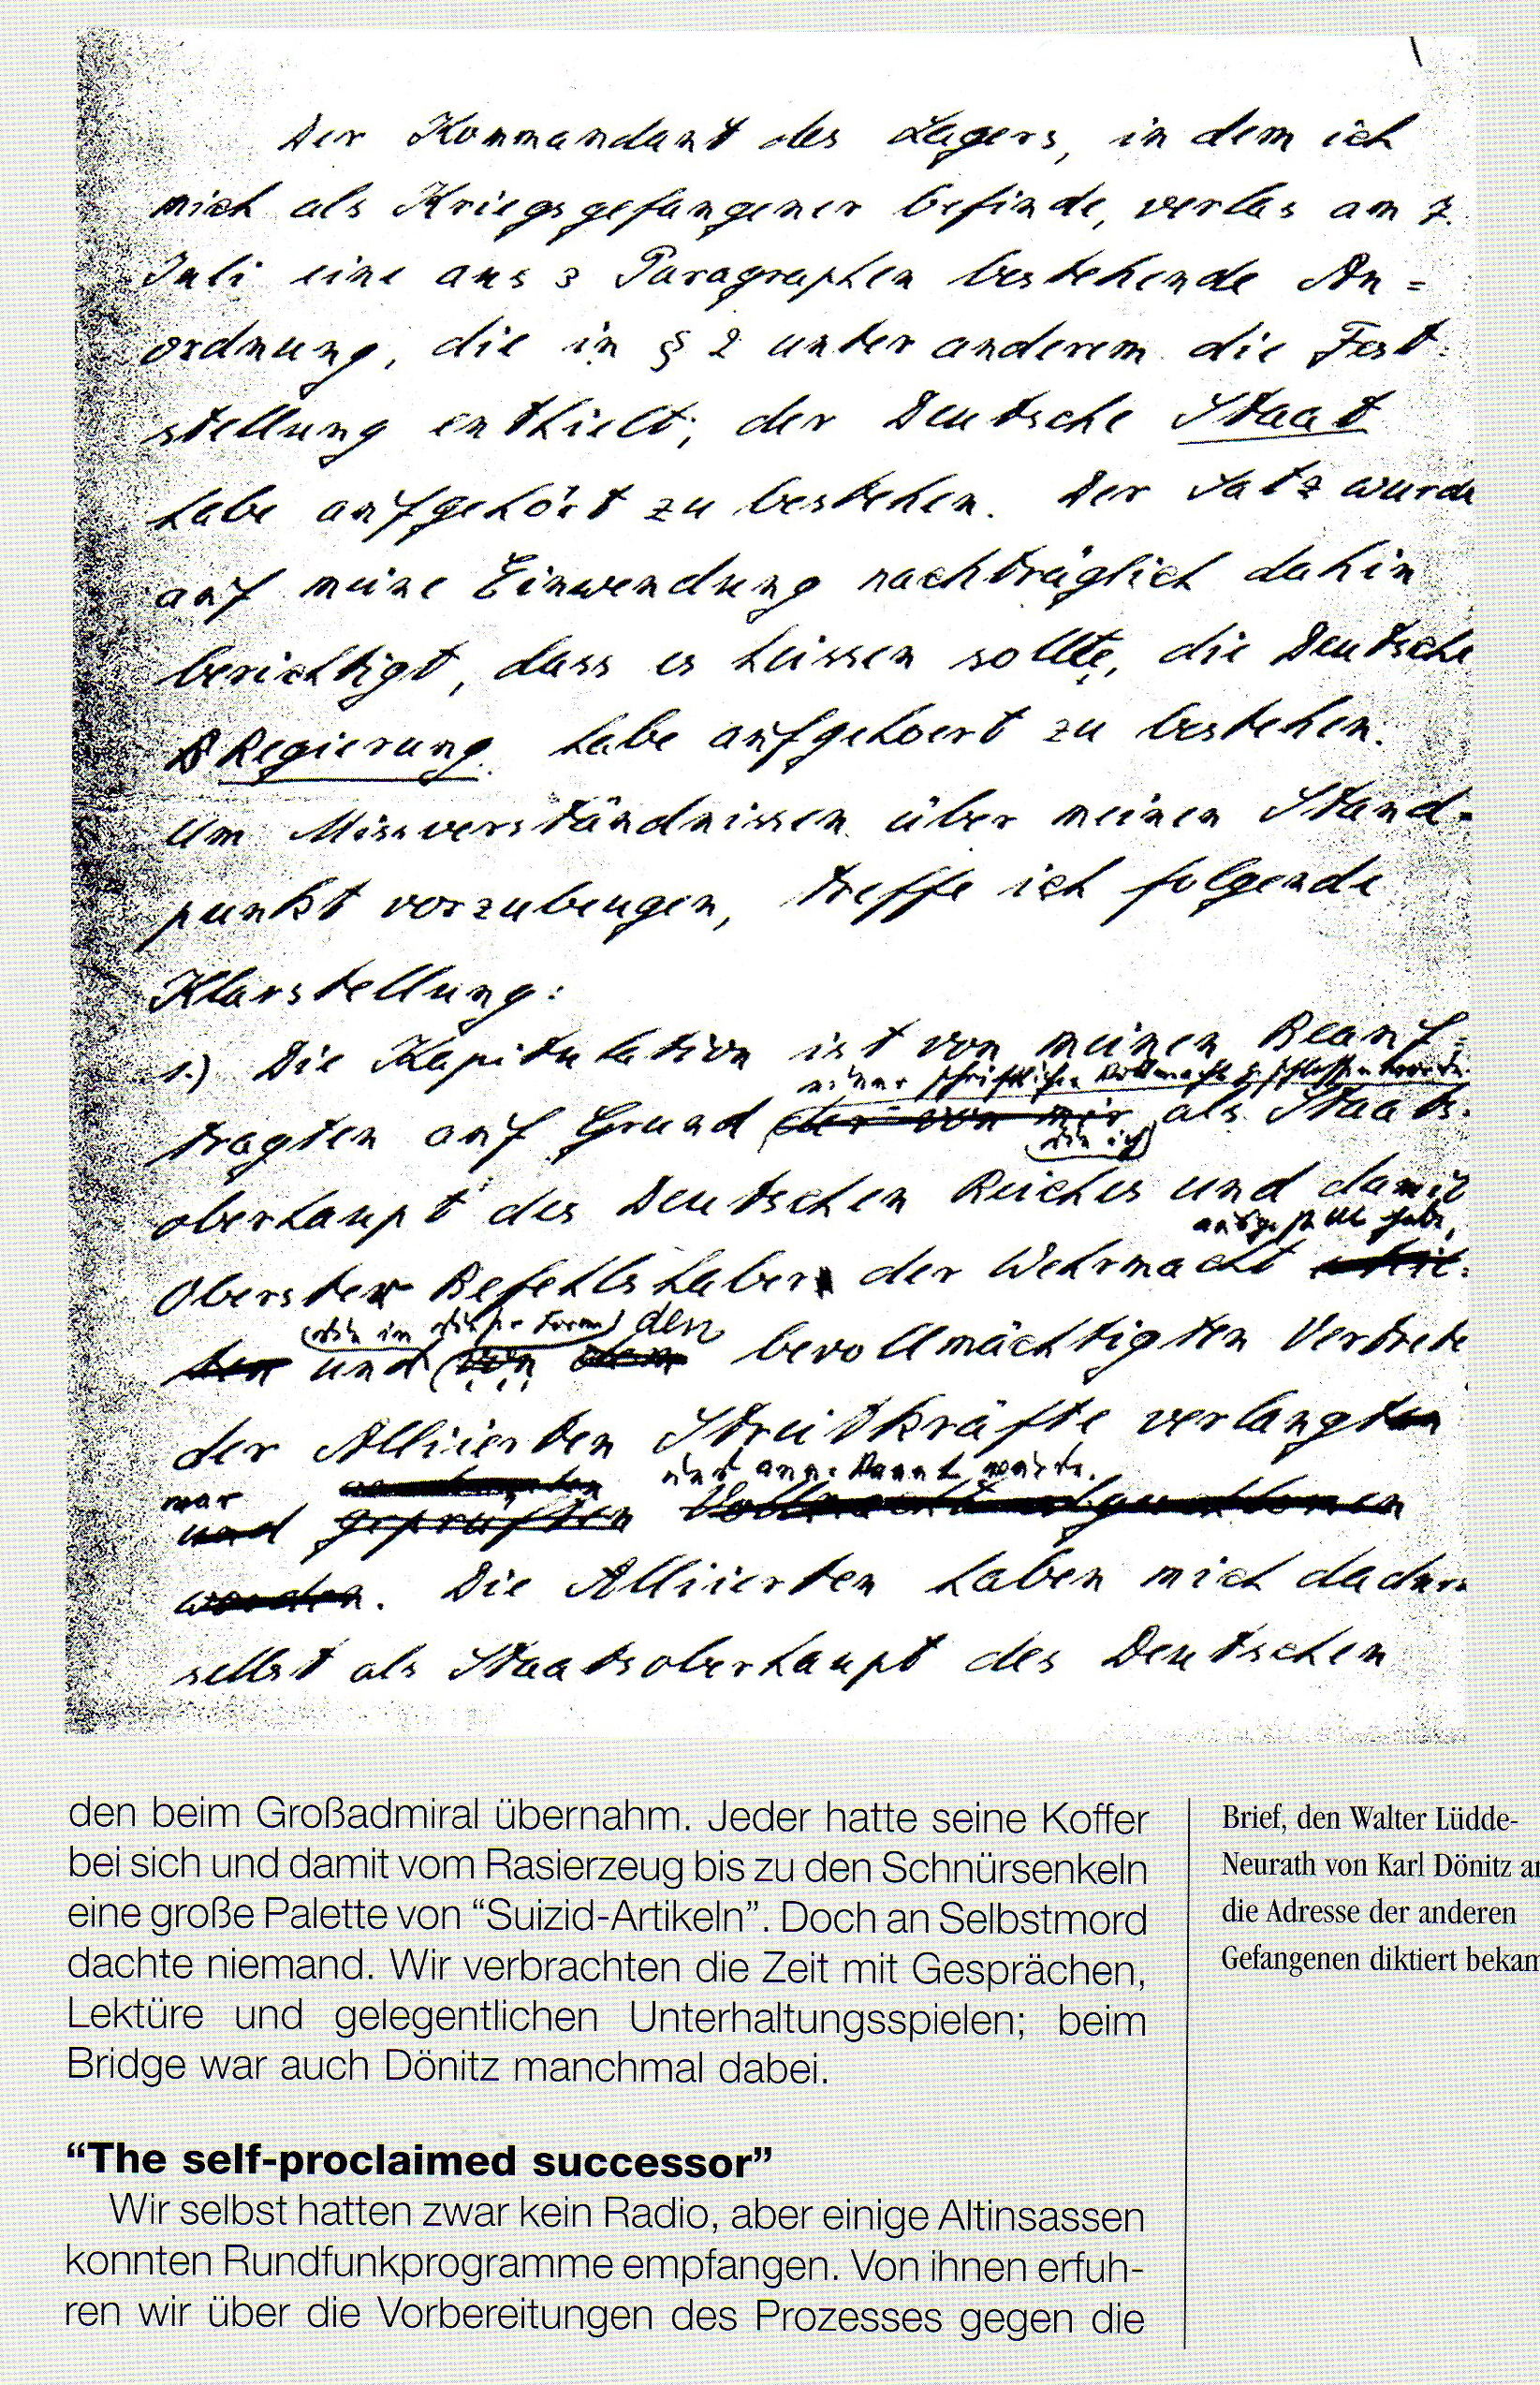 Der Kommandant des Lagers, in dem ich
mich als Kriegsgefangener befinde, verlas am 7.
Juli eine aus 3 Paragraphen bestehende An=
ordnung, die in § 2 unter anderem die Fest-
stellung enthielt, der Deutsche Staat
habe aufgehört zu bestehen. Der Satz wurde
auf meine Einwendung nachträglich dahin
berichtigt, dass es heissen sollte, die Deutsche
Regierung habe aufgehoert zu bestehen.
Um Missverständnissen über meinen Stand-
punkt vorzubeugen, treffe ich folgende
Klarstellung:
1.) Die Kapitulation ist von meinen Beauf=
einer schriftlichen Vollmacht geschlossen worden
tragten auf Grund der von mir als Staats-
die ich
oberhaupt des Deutschen Reiches und damit
ausgestellt habe,
Oberster Befehlshaber der Wehrmacht
(die in dieser Form) den
und von dem bevollmächtigten Vertrete
der Alliierten Streitkräfte verlangten
war und anerkannt wurde.
und geprüften
worden. Die Alliierten haben mich dadurch
selbst als Staatsoberhaupt des Deutschen
den beim Großadmiral übernahm. Jeder hatte seine Koffer
bei sich und damit vom Rasierzeug bis zu den Schnürsenkeln
eine große Palette von “Suizid-Artikeln”. Doch an Selbstmord
dachte niemand. Wir verbrachten die Zeit mit Gesprächen,
Lektüre und gelegentlichen Unterhaltungsspielen; beim
Bridge war auch Dönitz manchmal dabei.
“The self-proclaimed successor”
Wir selbst hatten zwar kein Radio, aber einige Altinsassen
konnten Rundfunkprogramme empfangen. Von ihnen erfuh-
ren wir über die Vorbereitungen des Prozesses gegen die
Brief, den Walter Lüdde-
Neurath von Karl Dönitz an
die Adresse der anderen
Gefangenen diktiert bekam